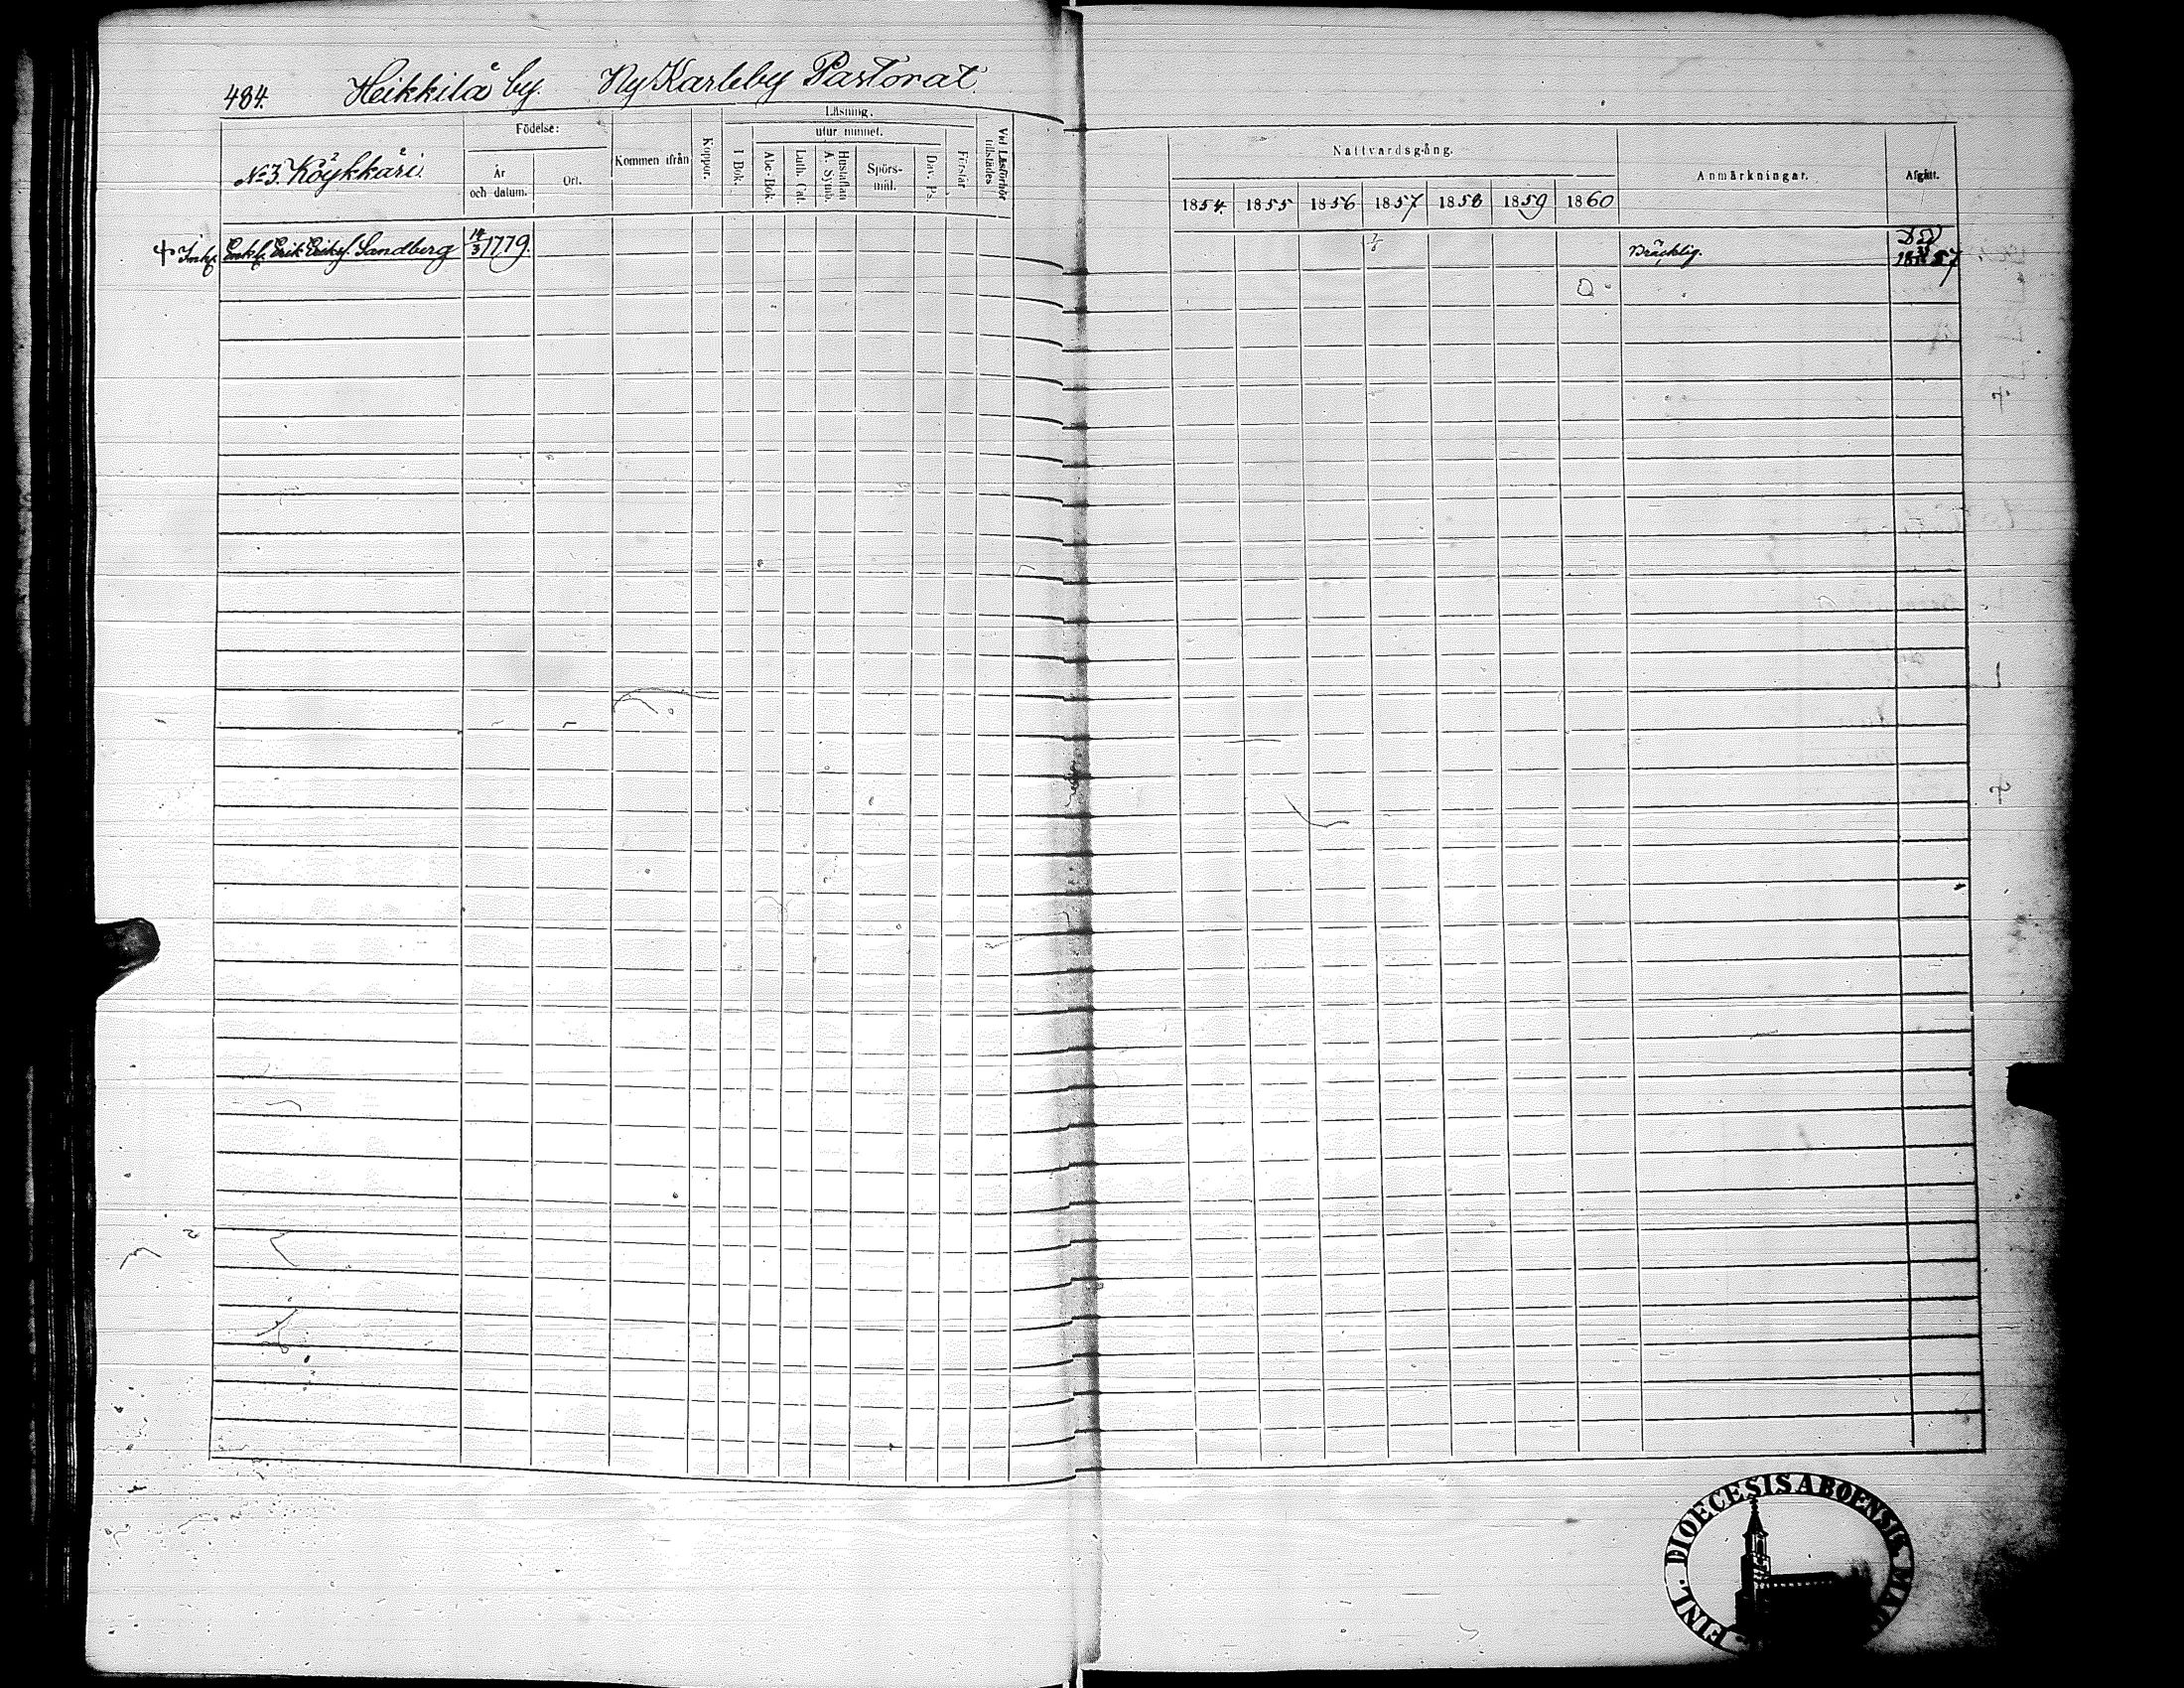 484. Heikkilä by. NyKarleby Pastorat.
No 3. Köykkäri.
Födelse:
År och datum.
Ort.
Kommen ifrån
Koppor.
Läsning.
I Bok.
utur minnet.
Abc-Bok.
Luth. Cat.
Hustaflan A. Symb.
Spörs-mål.
Dav. Ps.
Förstår
Vid Läsförhör tillstädes
Nattvardsgång.
1854. 1855 1856 1857 1858 1859 1860
Anmärkningar.
Afgått.
Inh. Enkl. Erik Eriks. Sandberg 14/3 1779. Bräcklig. 1857
FINL. DIOECESIS ABOENSIS